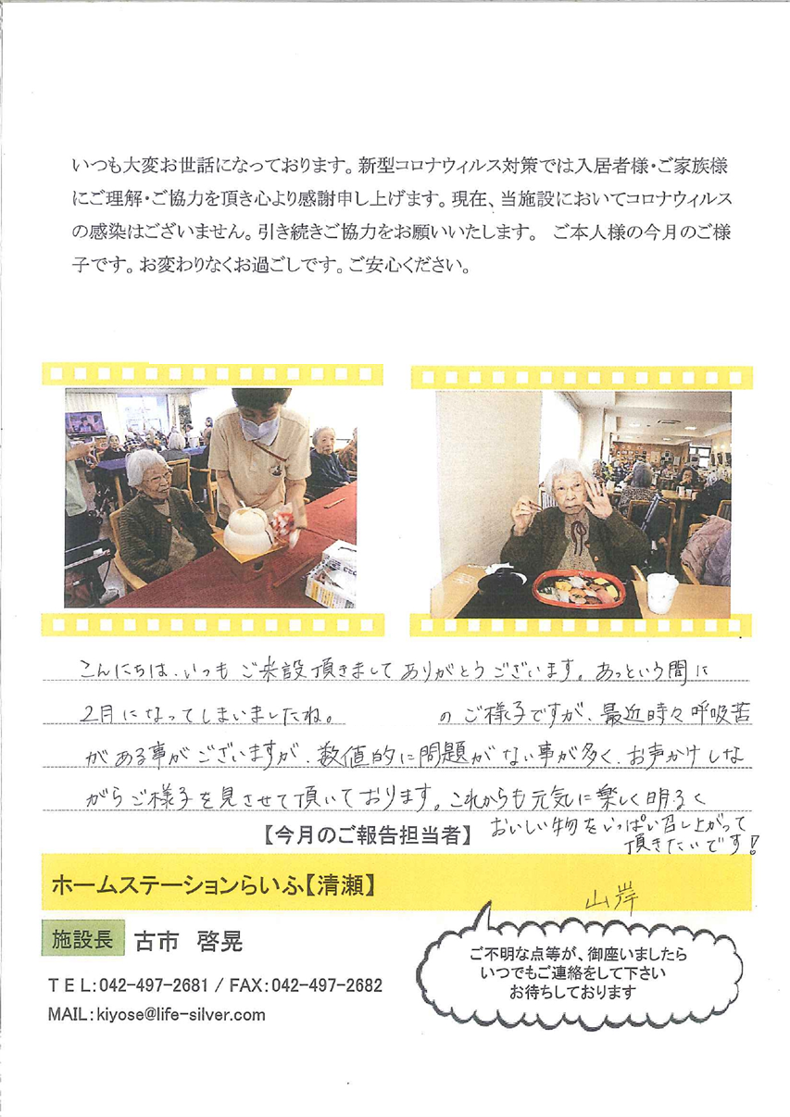 いつも大変お世話になっております。新型コロナウィルス対策では入居者様・ご家族様
にご理解・ご協力を頂き心より感謝申し上げます。現在、当施設においてコロナウィルス
の感染はございません。引き続きご協力をお願いいたします。 ご本人様の今月のご様
子です。お変わりなくお過ごしです。ご安心ください。
こんにちは、いつもご来設頂きましてありがとうございます。あっという間に
2月になってしまいましたね。 のご様子ですが、最近時々呼吸苦
がある事がございますが、数値的に問題がない事が多く、お声かけしな
がらご様子を見させて頂いております。これからも元気に楽しく明るく
おいしい物をいっぱい召し上がって
頂きたいです!
【今月のご報告担当者】
山岸
ホームステーションらいふ【清瀬】
施設長 古市 啓晃
TEL:042-497-2681 / FAX:042-497-2682
MAIL:kiyose@life-silver.com
ご不明な点等が、御座いましたら
いつでもご連絡をして下さい
お待ちしております